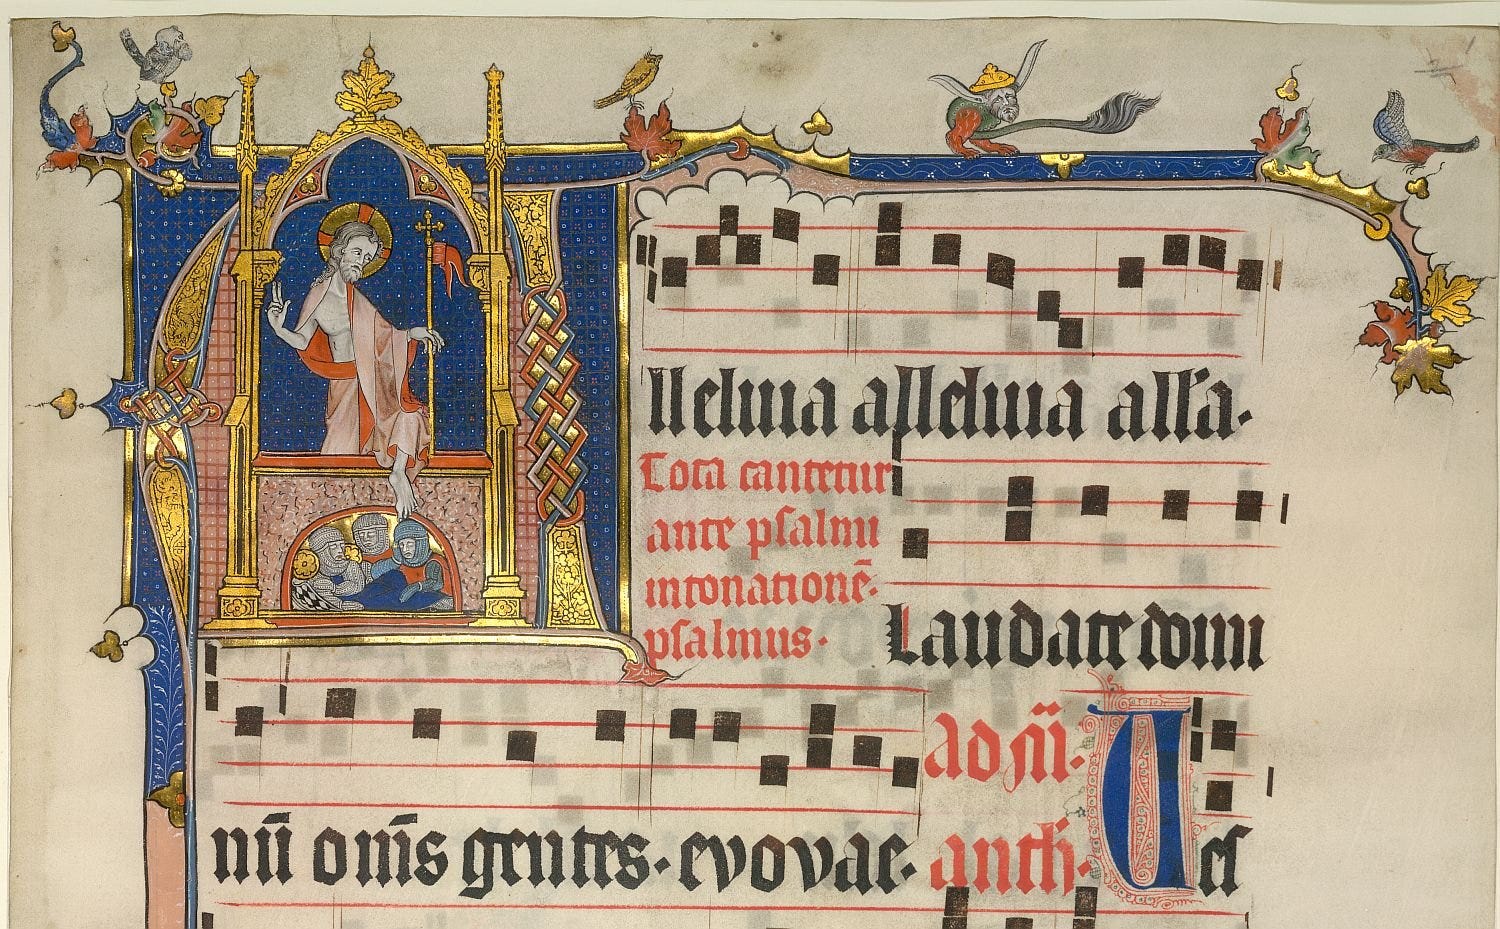 Alleluia alleluia alla.
Tota cantetur
ante psalmi
intonationē.
psalmus.
Laudate domi
Ad
nū om̄s gentes. evovae. anth. Ves